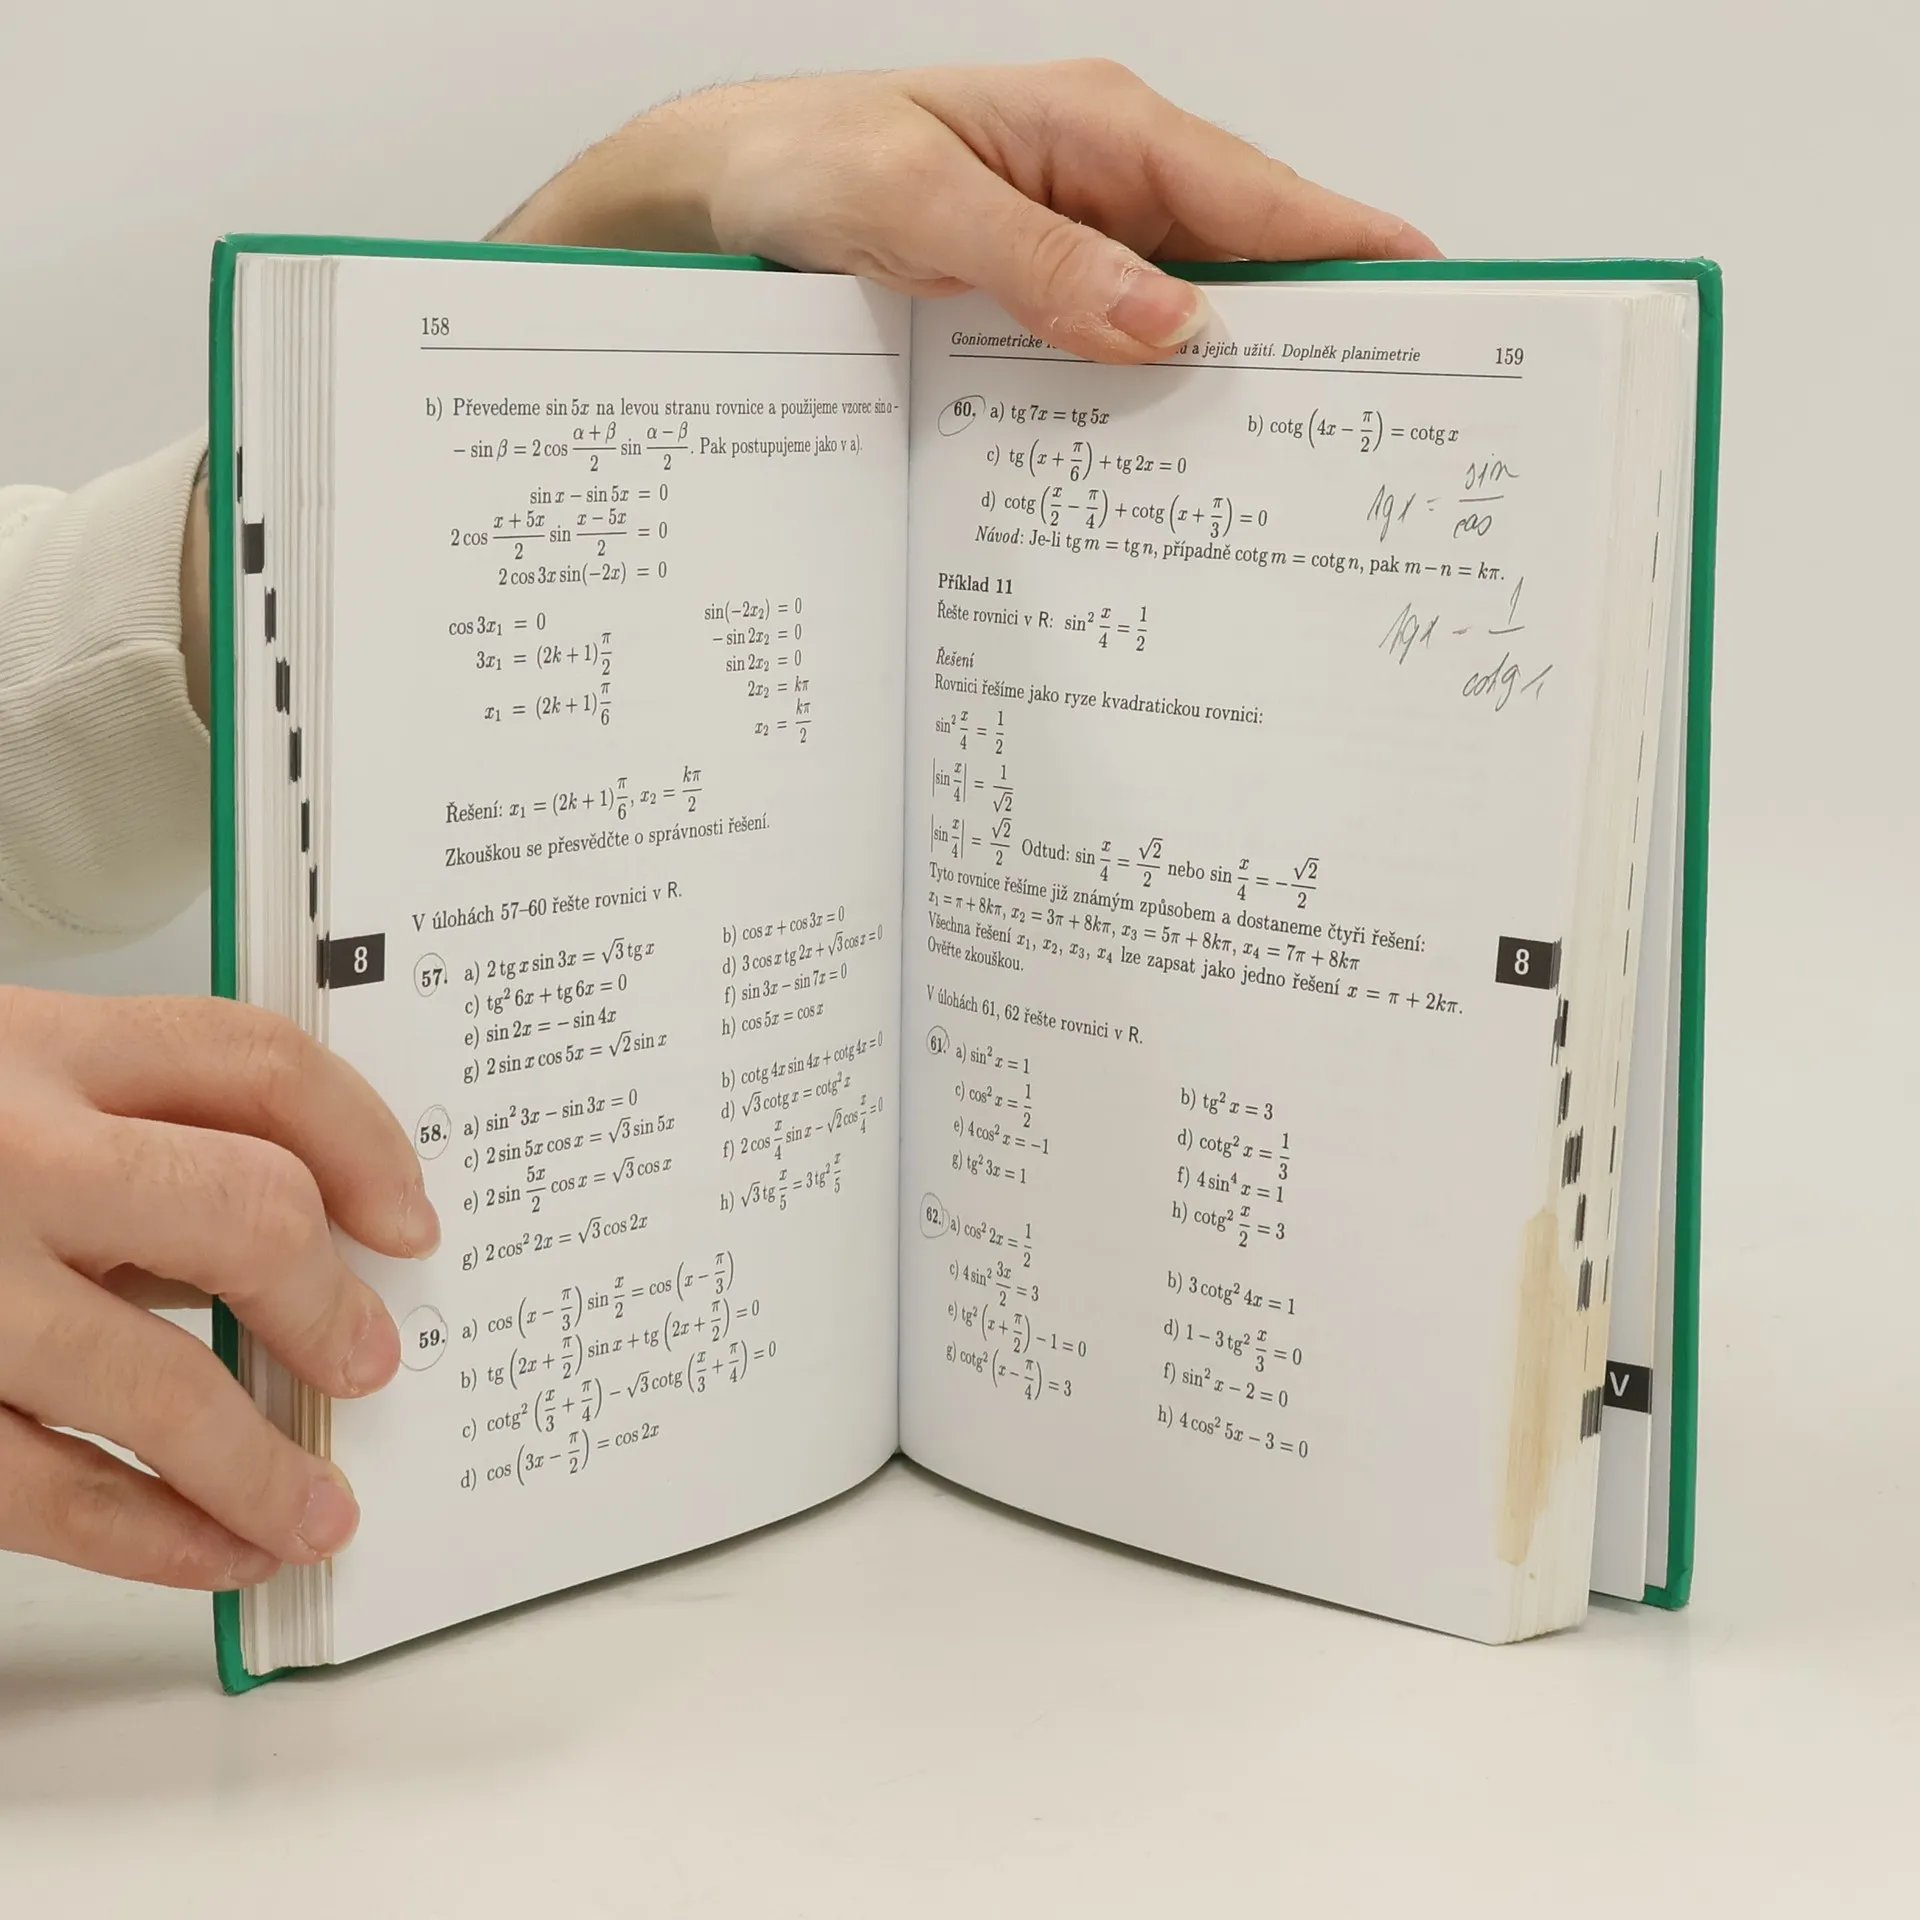 158
b) Převedeme sin 5x na levou stranu rovnice a použijeme vzorec sin α −
− sin β = 2 cos (α + β)/2 sin (α − β)/2. Pak postupujeme jako v a).
sin x − sin 5x = 0
2 cos (x + 5x)/2 sin (x − 5x)/2 = 0
2 cos 3x sin(−2x) = 0
cos 3x₁ = 0
3x₁ = (2k + 1) π/2
x₁ = (2k + 1) π/6
sin(−2x₂) = 0
− sin 2x₂ = 0
sin 2x₂ = 0
2x₂ = kπ
x₂ = kπ/2
Řešení: x₁ = (2k + 1) π/6, x₂ = kπ/2
Zkouškou se přesvědčte o správnosti řešení.
V úlohách 57–60 řešte rovnici v R.
8
57. a) 2 tg x sin 3x = √3 tg x b) cos x + cos 3x = 0
c) tg² 6x + tg 6x = 0 d) 3 cos x tg 2x + √3 cos x = 0
e) sin 2x = − sin 4x f) sin 3x − sin 7x = 0
g) 2 sin x cos 5x = √2 sin x h) cos 5x = cos x
58. a) sin² 3x − sin 3x = 0 b) cotg 4x sin 4x + cotg 4x = 0
c) 2 sin 5x cos x = √3 sin 5x d) √3 cotg x = cotg² x
e) 2 sin 5x/2 cos x = √3 cos x f) 2 cos x/4 sin x − √2 cos x/4 = 0
g) 2 cos² 2x = √3 cos 2x h) √3 tg x/5 = 3 tg² x/5
59. a) cos (x − π/3) sin x/2 = cos (x − π/3)
b) tg (2x + π/2) sin x + tg (2x + π/2) = 0
c) cotg² (x/3 + π/4) − √3 cotg (x/3 + π/4) = 0
d) cos (3x − π/2) = cos 2x
Goniometrické a jejich užití. Doplněk planimetrie 159
60. a) tg 7x = tg 5x b) cotg (4x − π/2) = cotg x
c) tg (x + π/6) + tg 2x = 0
d) cotg (x/2 − π/4) + cotg (x + π/3) = 0
tg x = sin/cos
Návod: Je-li tg m = tg n, případně cotg m = cotg n, pak m − n = kπ.
Příklad 11
Řešte rovnici v R: sin² x/4 = 1/2
tg x = 1/cotg x
Řešení
Rovnici řešíme jako ryze kvadratickou rovnici:
sin² x/4 = 1/2
|sin x/4| = 1/√2
|sin x/4| = √2/2 Odtud: sin x/4 = √2/2 nebo sin x/4 = −√2/2
Tyto rovnice řešíme již známým způsobem a dostaneme čtyři řešení:
x₁ = π + 8kπ, x₂ = 3π + 8kπ, x₃ = 5π + 8kπ, x₄ = 7π + 8kπ
Všechna řešení x₁, x₂, x₃, x₄ lze zapsat jako jedno řešení x = π + 2kπ.
Ověřte zkouškou.
8
V úlohách 61, 62 řešte rovnici v R.
61. a) sin² x = 1 b) tg² x = 3
c) cos² x = 1/2 d) cotg² x = 1/3
e) 4 cos² x = −1 f) 4 sin⁴ x = 1
g) tg² 3x = 1 h) cotg² x/2 = 3
62. a) cos² 2x = 1/2 b) 3 cotg² 4x = 1
c) 4 sin² 3x/2 = 3 d) 1 − 3 tg² x/3 = 0
e) tg² (x + π/2) − 1 = 0 f) sin² x − 2 = 0
g) cotg² (x − π/4) = 3 h) 4 cos² 5x − 3 = 0
V